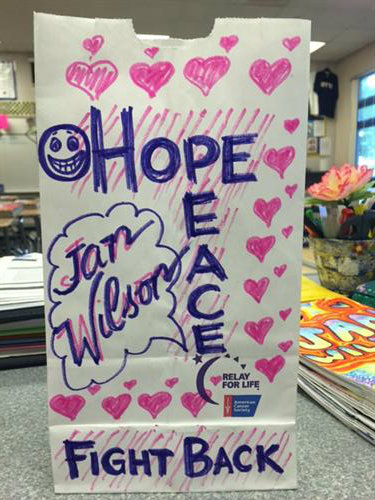 HOPE
PEACE
Jan
Wilson
RELAY
FOR LIFE
American
Cancer
Society
FIGHT BACK